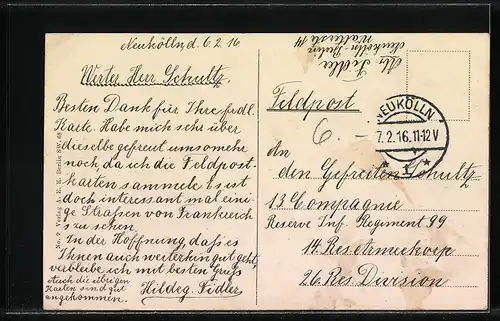 Neukölln, d. 6.2.16
Werter Herr Schultz,
Besten Dank für Ihre frdl.
Karte. Habe mich sehr über
dieselbe gefreut umsomehr
noch, da ich die Feldpost-
karten sammele. Es ist
doch interessant mal eini-
ge Straßen von Frankreich
zu sehen.
In der Hoffnung, daß es
Ihnen auch weiterhin gut geht,
verbleibe ich mit bestem Gruß
Hildeg. Fidler
Auch die übrigen
Karten sind gut
angekommen.
Berlin SW. 68
Fidler
Neukölln-Berlin
14
Feldpost
6. -
NEUKÖLLN
7.2.16.11-12V
* 1 *
An
den Gefreiten Schultz
13 Compagnie
Reserve Inf. Regiment 99
14. Res. Armeekorp
26. Res. Division